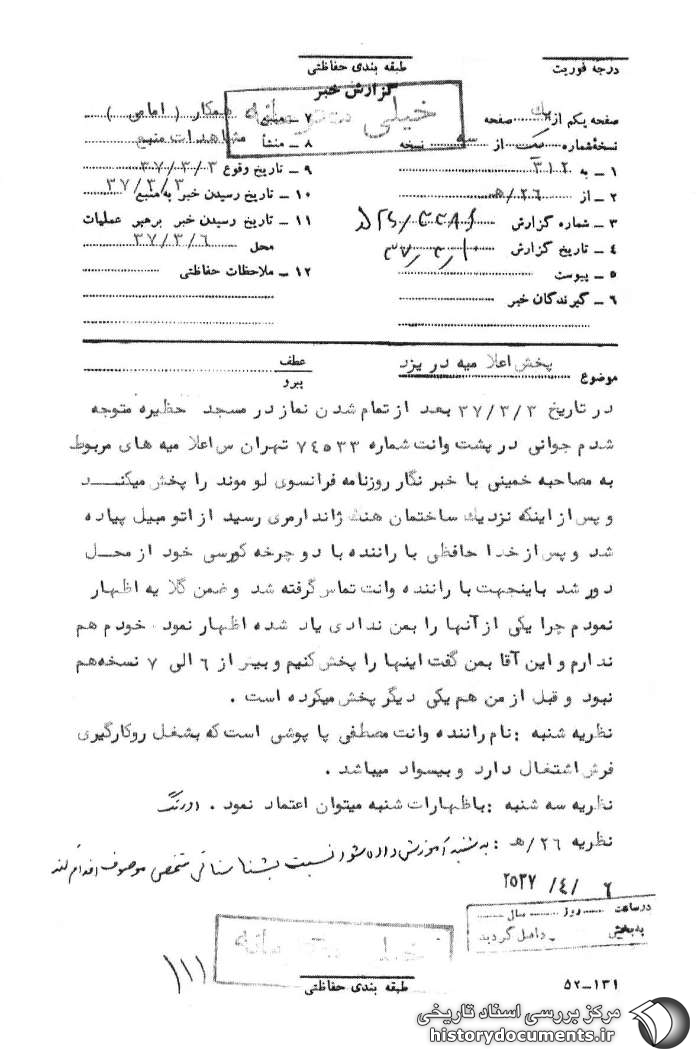 درجه فوریت
طبقه بندی حفاظتی
گزارش خبر
خیلی محرمانه
صفحه یکم از یك صفحه
نسخهٔ شماره یک از سه نسخه
۱ – به ۳۱۲
۲ – از ۲۶/ه‍
۳ – شماره گزارش
۴ – تاریخ گزارش
۵ – پیوست
۶ – گیرندگان خبر
۷ – منبع همکار ( امامی )
۸ – منشأ مشاهدات منبع
۹ – تاریخ وقوع ۳۷/۳/۳
۱۰ – تاریخ رسیدن خبر به منبع ۳۷/۳/۳
۱۱ – تاریخ رسیدن خبر برهبر عملیات
محل ۳۷/۳/۶
۱۲ – ملاحظات حفاظتی
موضوع پخش اعلا میه در یزد
عطف
پیرو
در تاریخ ۳۷/۳/۳ بعد از تمام شدن نماز در مسجد حظیره متوجه
شدم جوانی در پشت وانت شماره ۷۴۵۳۳ تهران س اعلا میه های مربوط
به مصاحبه خمینی با خبر نگار روزنامه فرانسوی لو موند را پخش میکند
و پس از اینکه نزدیك ساختمان هنگ ژاندارمری رسید از اتومبیل پیاده
شد و پس از خدا حافظی با راننده با دو چرخه کورسی خود از محل
دور شد باینجهت با راننده وانت تماس گرفته شد و ضمن گلا یه اظهار
نمودم چرا یکی از آنها را بمن ندادی یاد شده اظهار نمود خودم هم
ندارم و این آقا بمن گفت اینها را پخش کنیم و بیشتر از ۶ الی ۷ نسخه هم
نبود و قبل از من هم یکی دیگر پخش میکرده است .
نظریه شنبه : نام راننده وانت مصطفی پا پوشی است که بشغل روکارگیری
فرش اشتغال دارد و بیسواد میباشد .
نظریه سه شنبه : باظهارات شنبه میتوان اعتماد نمود . اورنگ
نظریه ۲۶/ه‍ : به شنبه آموزش داده شود نسبت بشناسائی شخص موصوف اقدام کند
۲۵۳۷/۴/۶
در ساعت روز سال
به بخش داخل گردید
خیلی محرمانه
طبقه بندی حفاظتی
۵۲–۱۳۱
مرکز بررسی اسناد تاریخی
historydocuments.ir